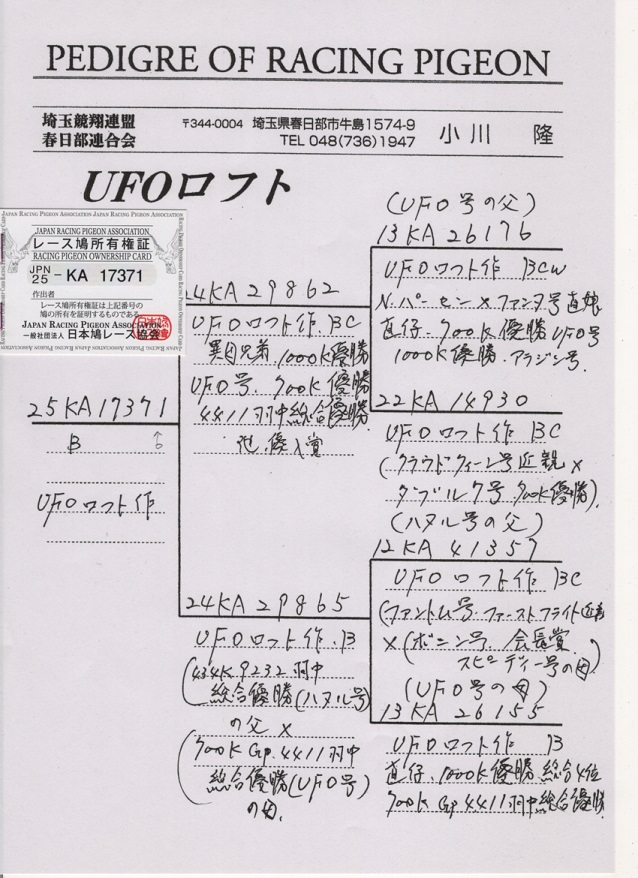 PEDIGRE OF RACING PIGEON
埼玉競翔連盟
春日部連合会
〒344-0004 埼玉県春日部市牛島1574-9
TEL 048(736)1947
小川 隆
UFOロフト
JAPAN RACING PIGEON ASSOCIATION JAPAN RACING PIGEON ASSOCIATION
JAPAN RACING PIGEON ASSOCIATION
レース鳩所有権証
RACING PIGEON OWNERSHIP CARD
JPN 25 - KA 17371
作出者
レース鳩所有権証は上記番号の
鳩の所有を証明するものである
JAPAN RACING PIGEON ASSOCIATION
一般社団法人 日本鳩レース協会
25KA17371
B ♀
UFOロフト作
24KA29862
UFOロフト作 BC
異父兄弟 1000K優勝
UFO号、700K優勝
4411羽中総合優勝
他、優入賞
24KA29865
UFOロフト作 B
(434K9232羽中
総合優勝(ハヌル号)
の父 ×
(700K Gp 4411羽中
総合優勝(UFO号)
の母.
(UFO号の父)
13KA26176
UFOロフト作 BCW
N.パーセン×ファンタ号直娘
直仔、700K優勝 UFO号
1000K優勝、アラジン号.
22KA14930
UFOロフト作 BC
(クラウドクィーン号近親×
ダブル7号 700K優勝)
(ハヌル号の父)
12KA41357
UFOロフト作 BC
(ファントム号 ファーストフライト近親
×(ボニン号 会長賞
スピーディー号の母)
(UFO号の母)
13KA26155
UFOロフト作 B
直仔、1000K優勝 総合4位
700K Gp 4411羽中総合優勝